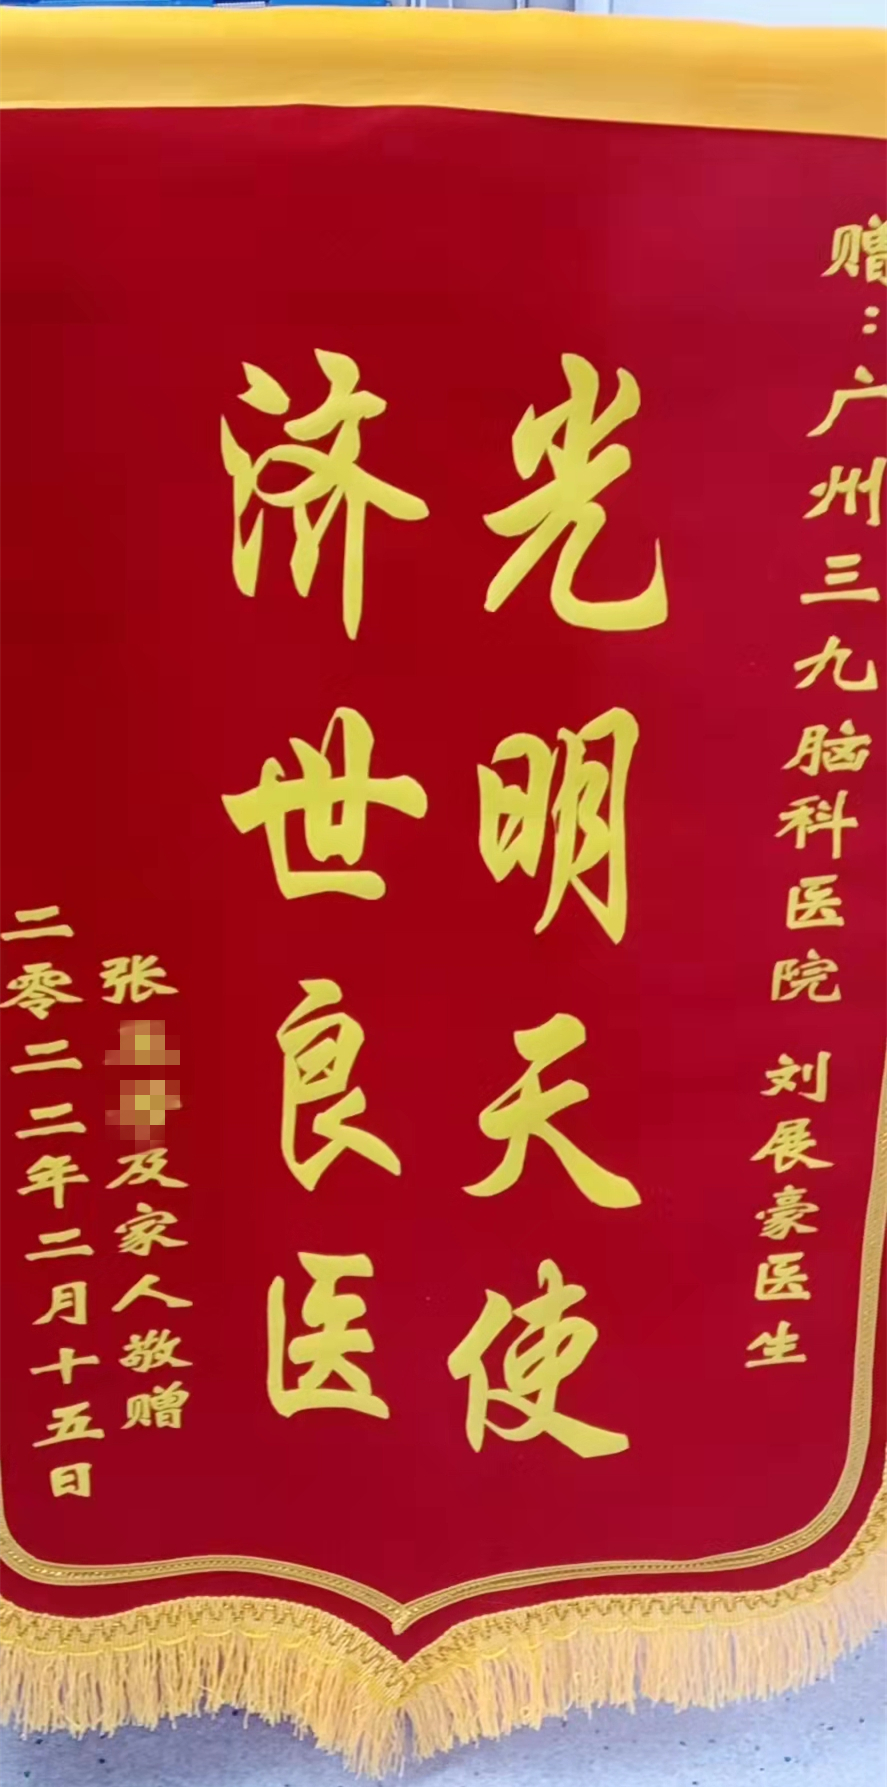 赠：广州三九脑科医院 刘展豪医生
光明天使
济世良医
张 及家人敬赠
二零二二年二月十五日